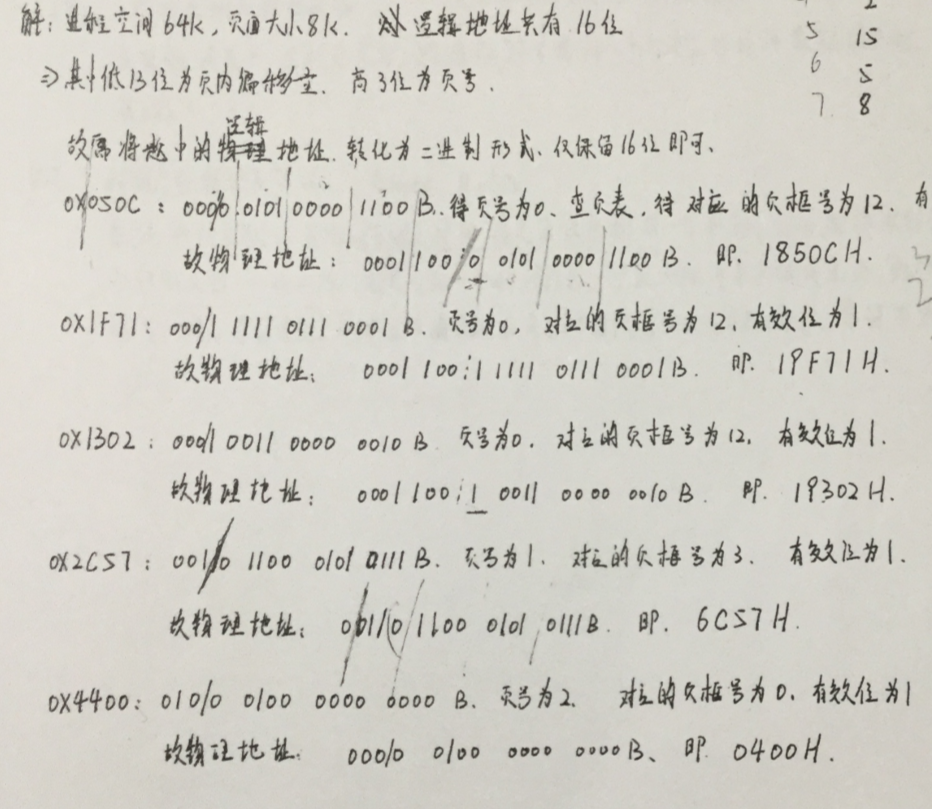 解：进程空间64k，页面大小8k. 逻辑地址共有16位
5 15
⇒其中低13位为页内偏移量. 高3位为页号.
6 5
7 8
逻辑
故需将题中的物理地址. 转化为二进制形式、仅保留16位即可、
0X050C：0000 0101 0000 1100 B. 得页号为0、查页表，得对应的页框号为12. 有
故物理地址：0001 100 0 0101 0000 1100 B. 即. 1850CH.
0X1F71：000/1 1111 0111 0001 B. 页号为0, 对应的页框号为12, 有效位为1.
故物理地址：0001 100 1 1111 0111 0001B. 即. 19F71H.
0X1302：000/1 0011 0000 0010 B 页号为0. 对应的页框号为12, 有效位为1.
故物理地址：0001 100 1 0011 0000 0010 B. 即. 19302H.
0X2C57：001/0 1100 0101 0111B. 页号为1. 对应的页框号为3. 有效位为1.
故物理地址：011/0 1100 0101 0111B. 即. 6C57H.
0X4400：010/0 0100 0000 0000 B. 页号为2. 对应的页框号为0. 有效位为1
故物理地址：000/0 0100 0000 0000B、即 0400H.